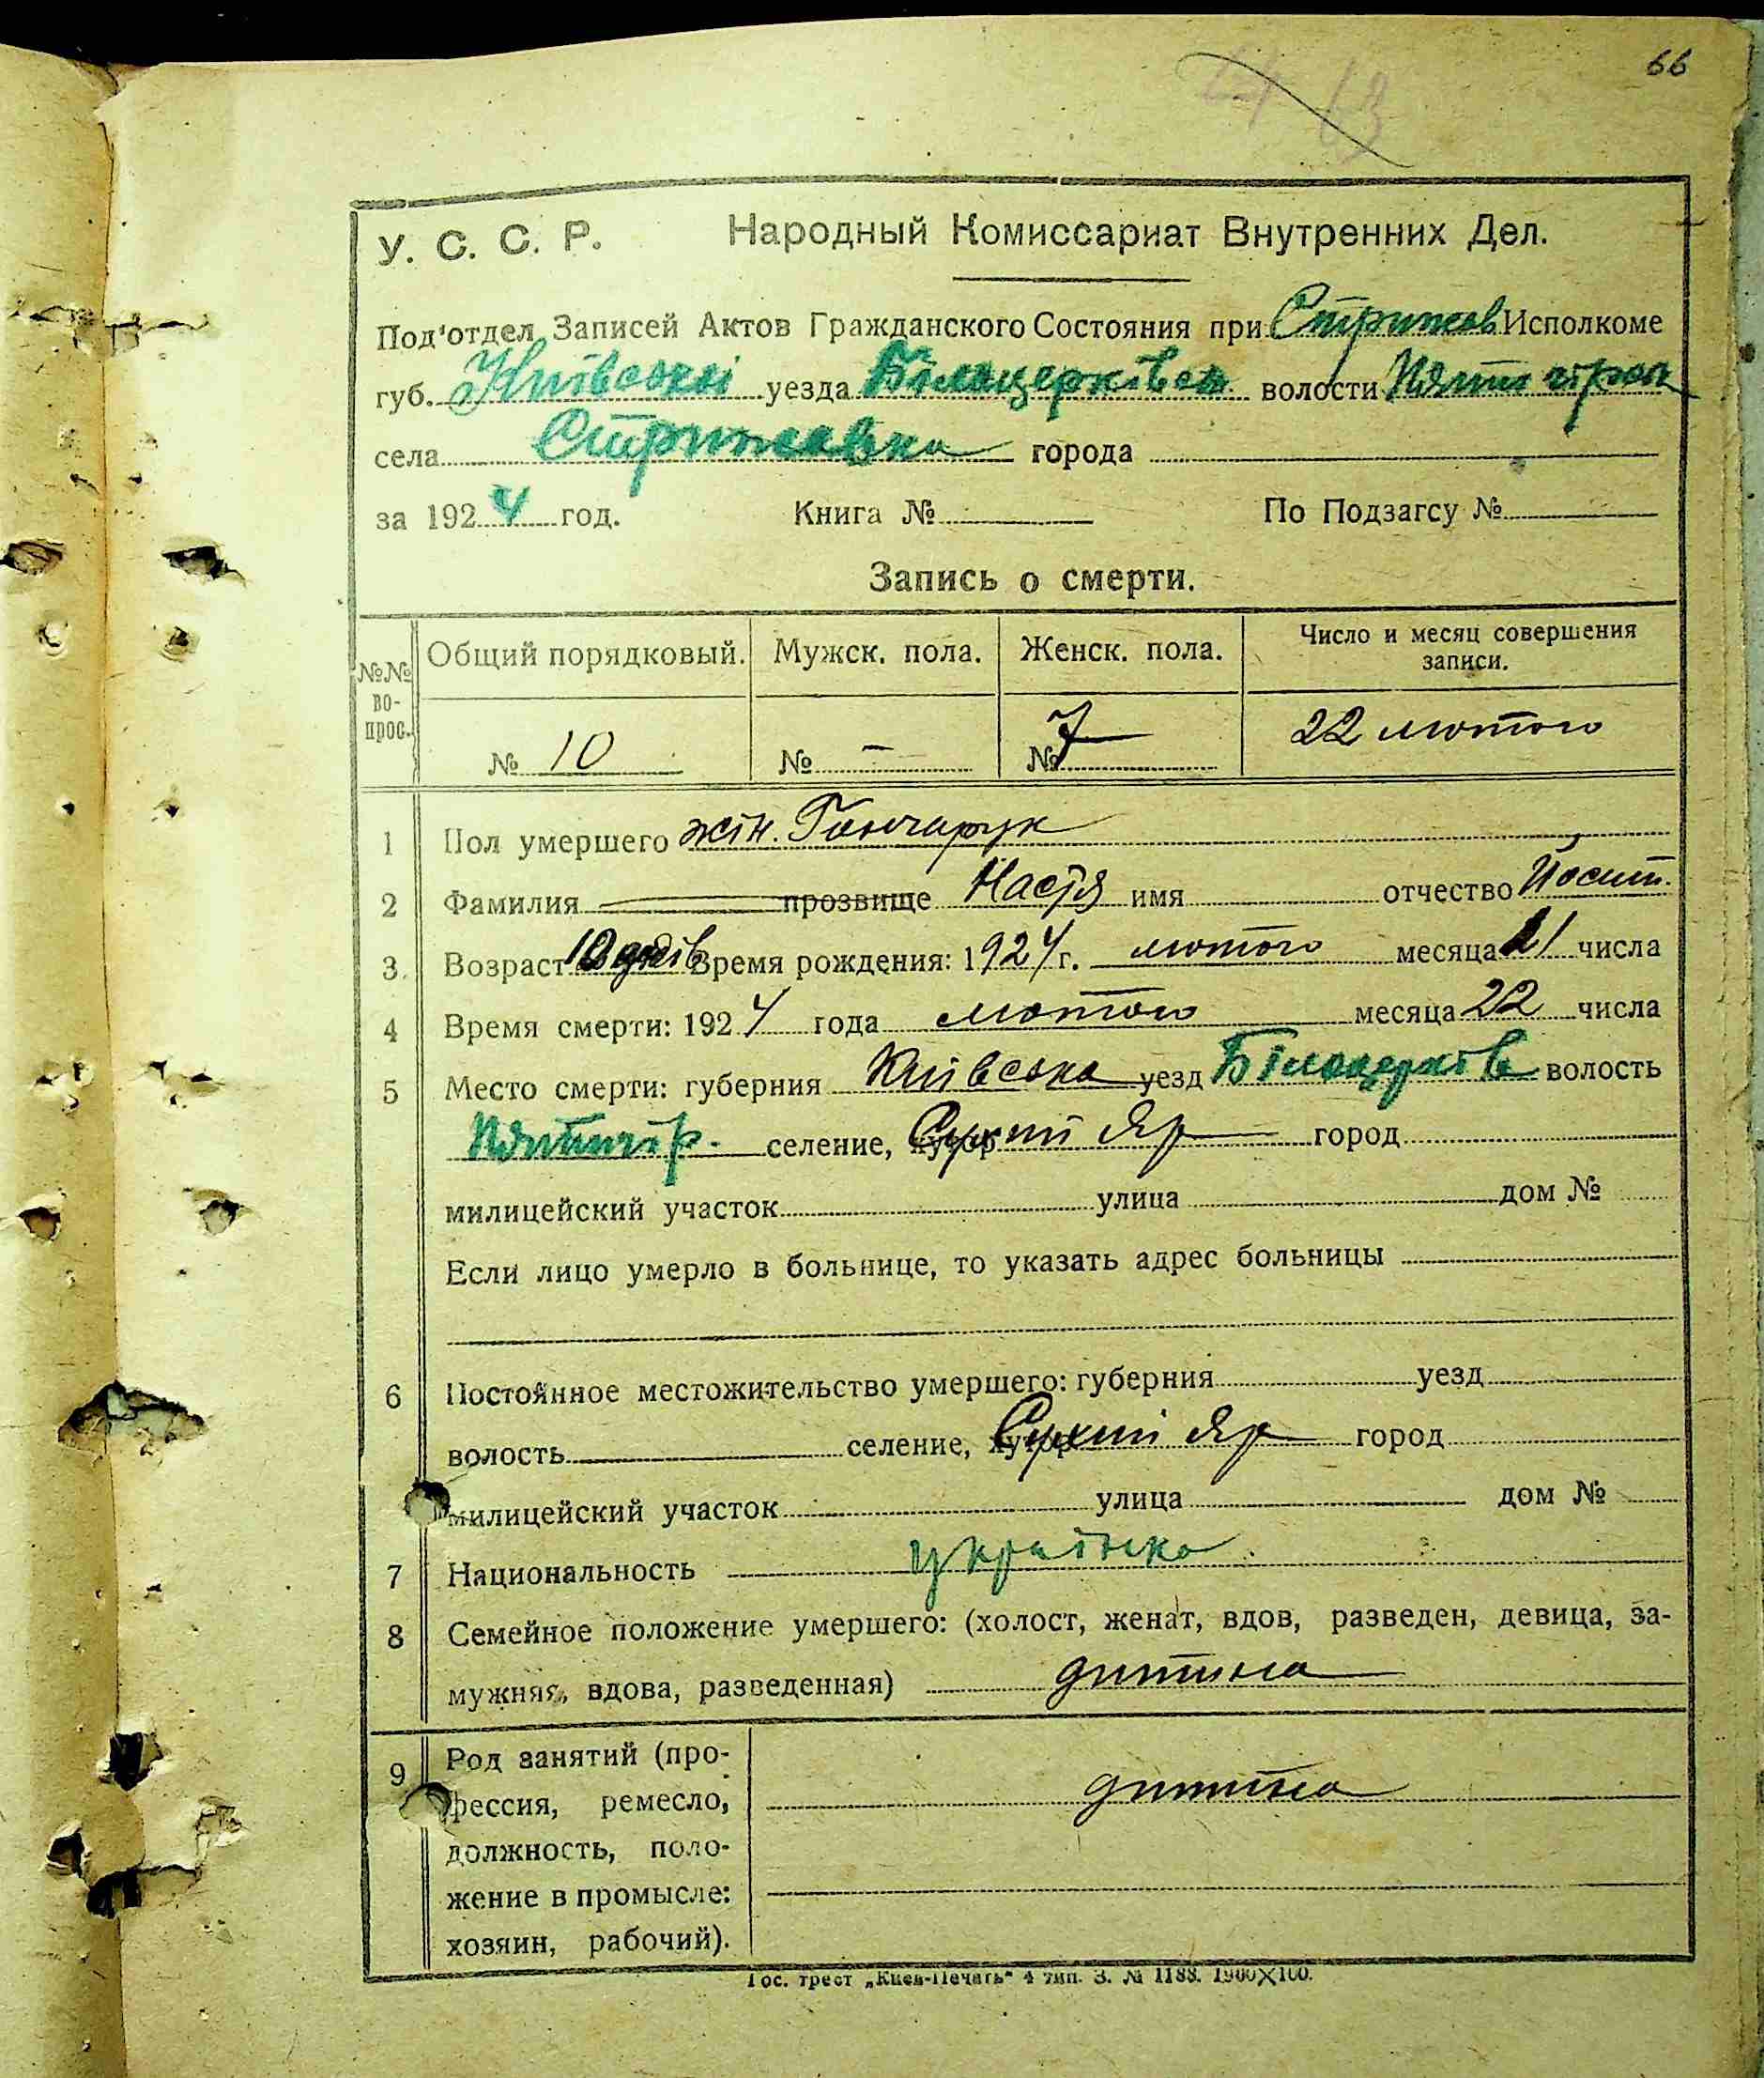 66
У. С. С. Р. Народный Комиссариат Внутренних Дел.
Под'отдел Записей Актов Гражданского Состояния при Стрижав Исполкоме
губ. Київської уезда Білоцерківск. волости
села Стрижавка города
за 1924 год. Книга № По Подзагсу №
Запись о смерти.
№№ во-прос. Общий порядковый. Мужск. пола. Женск. пола. Число и месяц совершения записи.
№ 10 № – № 7 22 лютого
1 Пол умершего жін. Гончарук
2 Фамилия прозвище Настя имя отчество Йосип.
3. Возраст 10 днів Время рождения: 1924 г. лютого месяца числа
4 Время смерти: 1924 года лютого месяца 22 числа
5 Место смерти: губерния Київська уезд Білоцерків волость
Пятигір. селение, хутор Сухий Яр город
милицейский участок улица дом №
Если лицо умерло в больнице, то указать адрес больницы
6 Постоянное местожительство умершего: губерния уезд
волость селение, хутор Сухий Яр город
милицейский участок улица дом №
7 Национальность українка
8 Семейное положение умершего: (холост, женат, вдов, разведен, девица, за-
мужняя, вдова, разведенная) дитина
9 Род занятий (про-
фессия, ремесло, дитина
должность, поло-
жение в промысле:
хозяин, рабочий).
Гос. трест „Киев-Печать" 4 тип. З. № 1188. 1900×100.